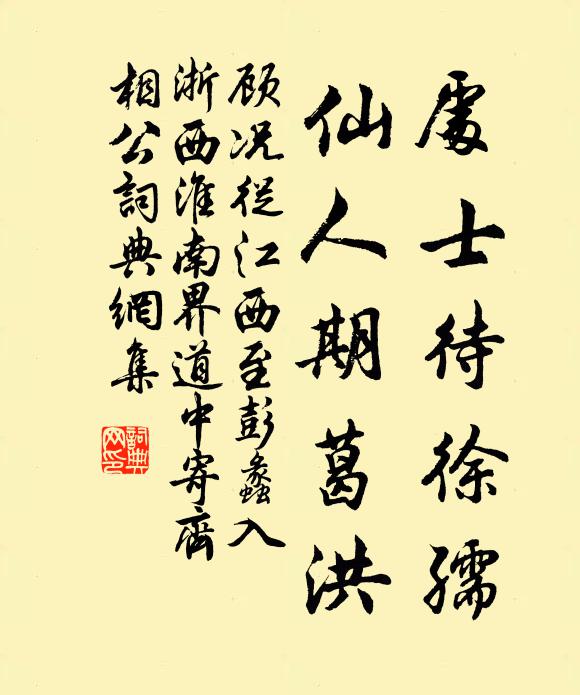 處士待徐孺
仙人期葛洪
顾况從江西至彭蠡入
浙西淮南界道中寄齊
相公詞典網集
詞典
网印